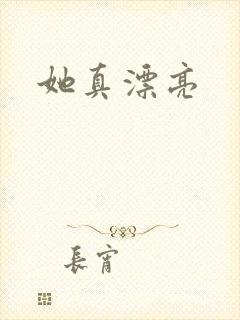 她真漂亮
長宵